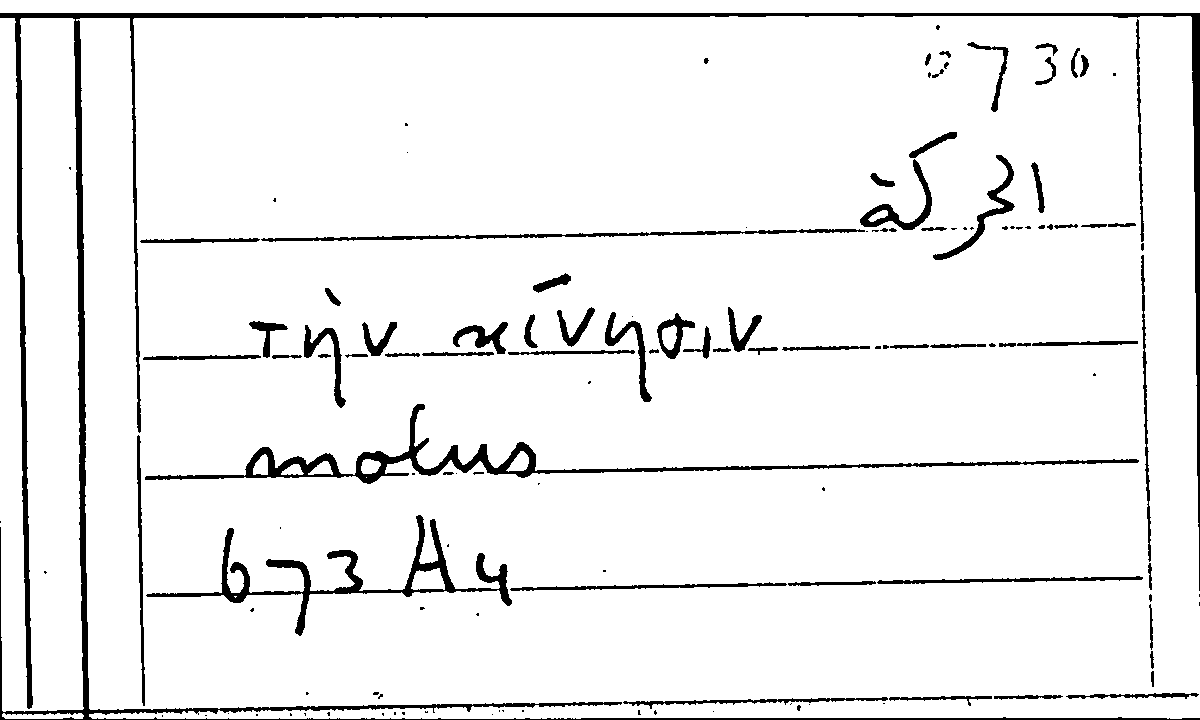 0730
τὴν κίνησιν
motus
673 A4